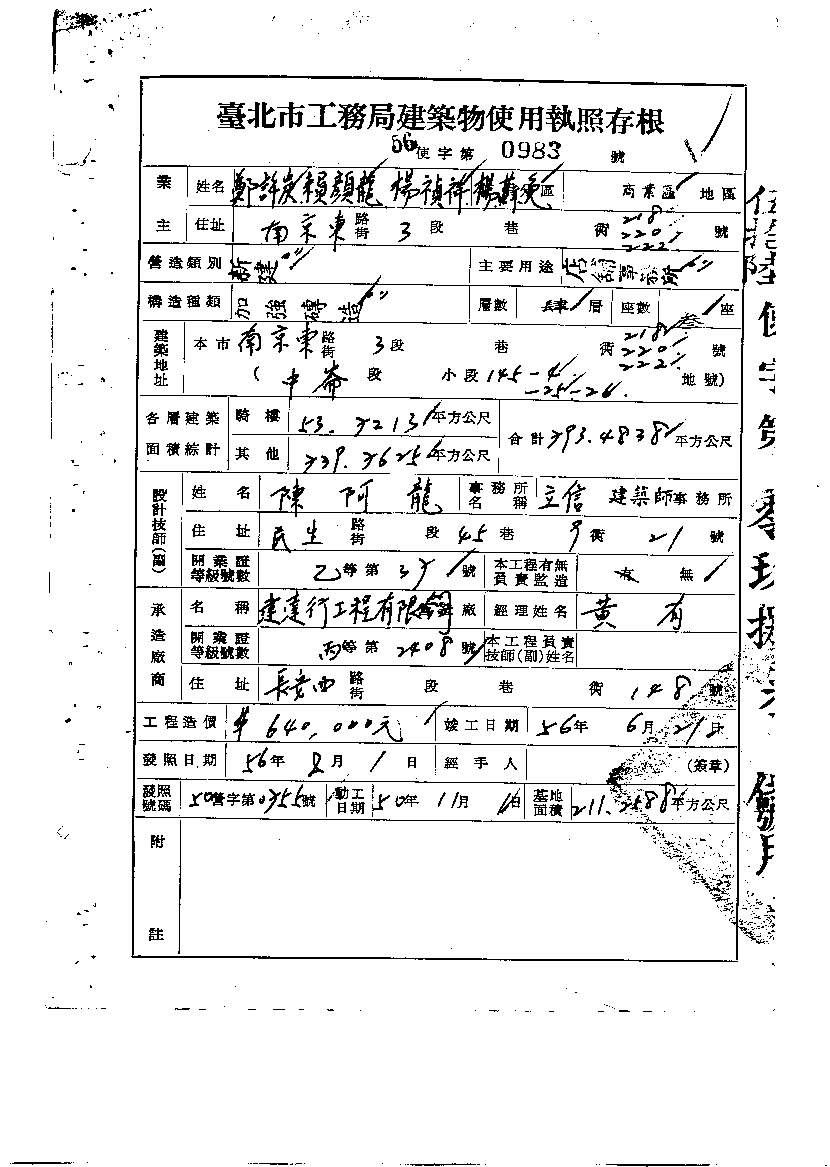 臺北市工務局建築物使用執照存根
56使字第 0983 號
業主 姓名 鄭許炭 賴顏龍 楊禎祥 區 商業區 地區
住址 南京東路 3段 巷 衖 218 220 222 號
營造類別 新建 主要用途 店鋪事務所
構造種類 加強磚造 層數 肆層 座數 叁座
建築地址 本市南京東路街 3段 巷 衖 218 220 222 號
(中崙段 小段 145-4 -25-26. 地號)
各層建築面積綜計 騎樓 53.3213平方公尺 合計 393.4838平方公尺
其他 339.3625平方公尺
設計技師(副) 姓名 陳阿龍 事務所名稱 立信 建築師事務所
住址 民生路街 段 45巷 9衖 21號
開業證等級號數 乙等第 37號 本工程有無負責監造 有 無
承造廠商 名稱 建達行工程有限 廠 經理姓名 黃有
開業證等級號數 丙等第 2408號 本工程負責技師(副)姓名
住址 長安西路街 段 巷 衖 148號
工程造價 $640,000元 竣工日期 56年 6月 21日
發照日期 56年 8月 1日 經手人 (簽章)
發照號碼 50營字第0355號 動工日期 50年 11月 1日 基地面積 211.2588平方公尺
附註
伍拾陸使字第零玖捌